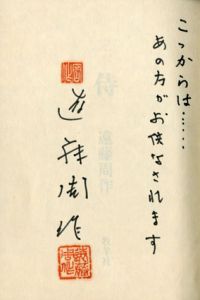 ここからは……
あの方がお供なされます
遠藤周作
侍
遠藤周作